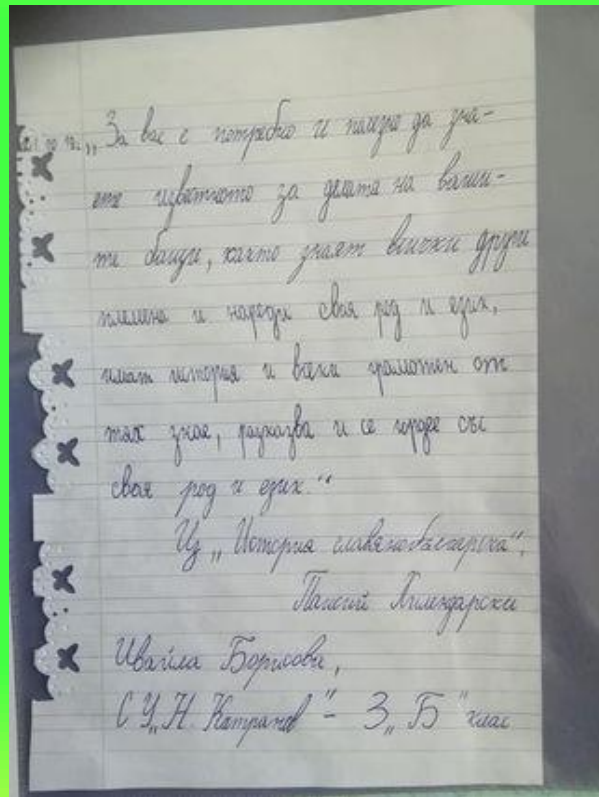 „За вас е потребно и полезно да зна-
ете известното за делата на ваши-
те бащи, както знаят всички други
племена и народи своя род и език,
имат история и всеки грамотен от
тях знае, разказва и се гордее със
своя род и език.“
Из „История славянобългарска“,
Паисий Хилендарски
Ивайла Борисова,
СУ „Н. Катранов“ – 3 „Б“ клас